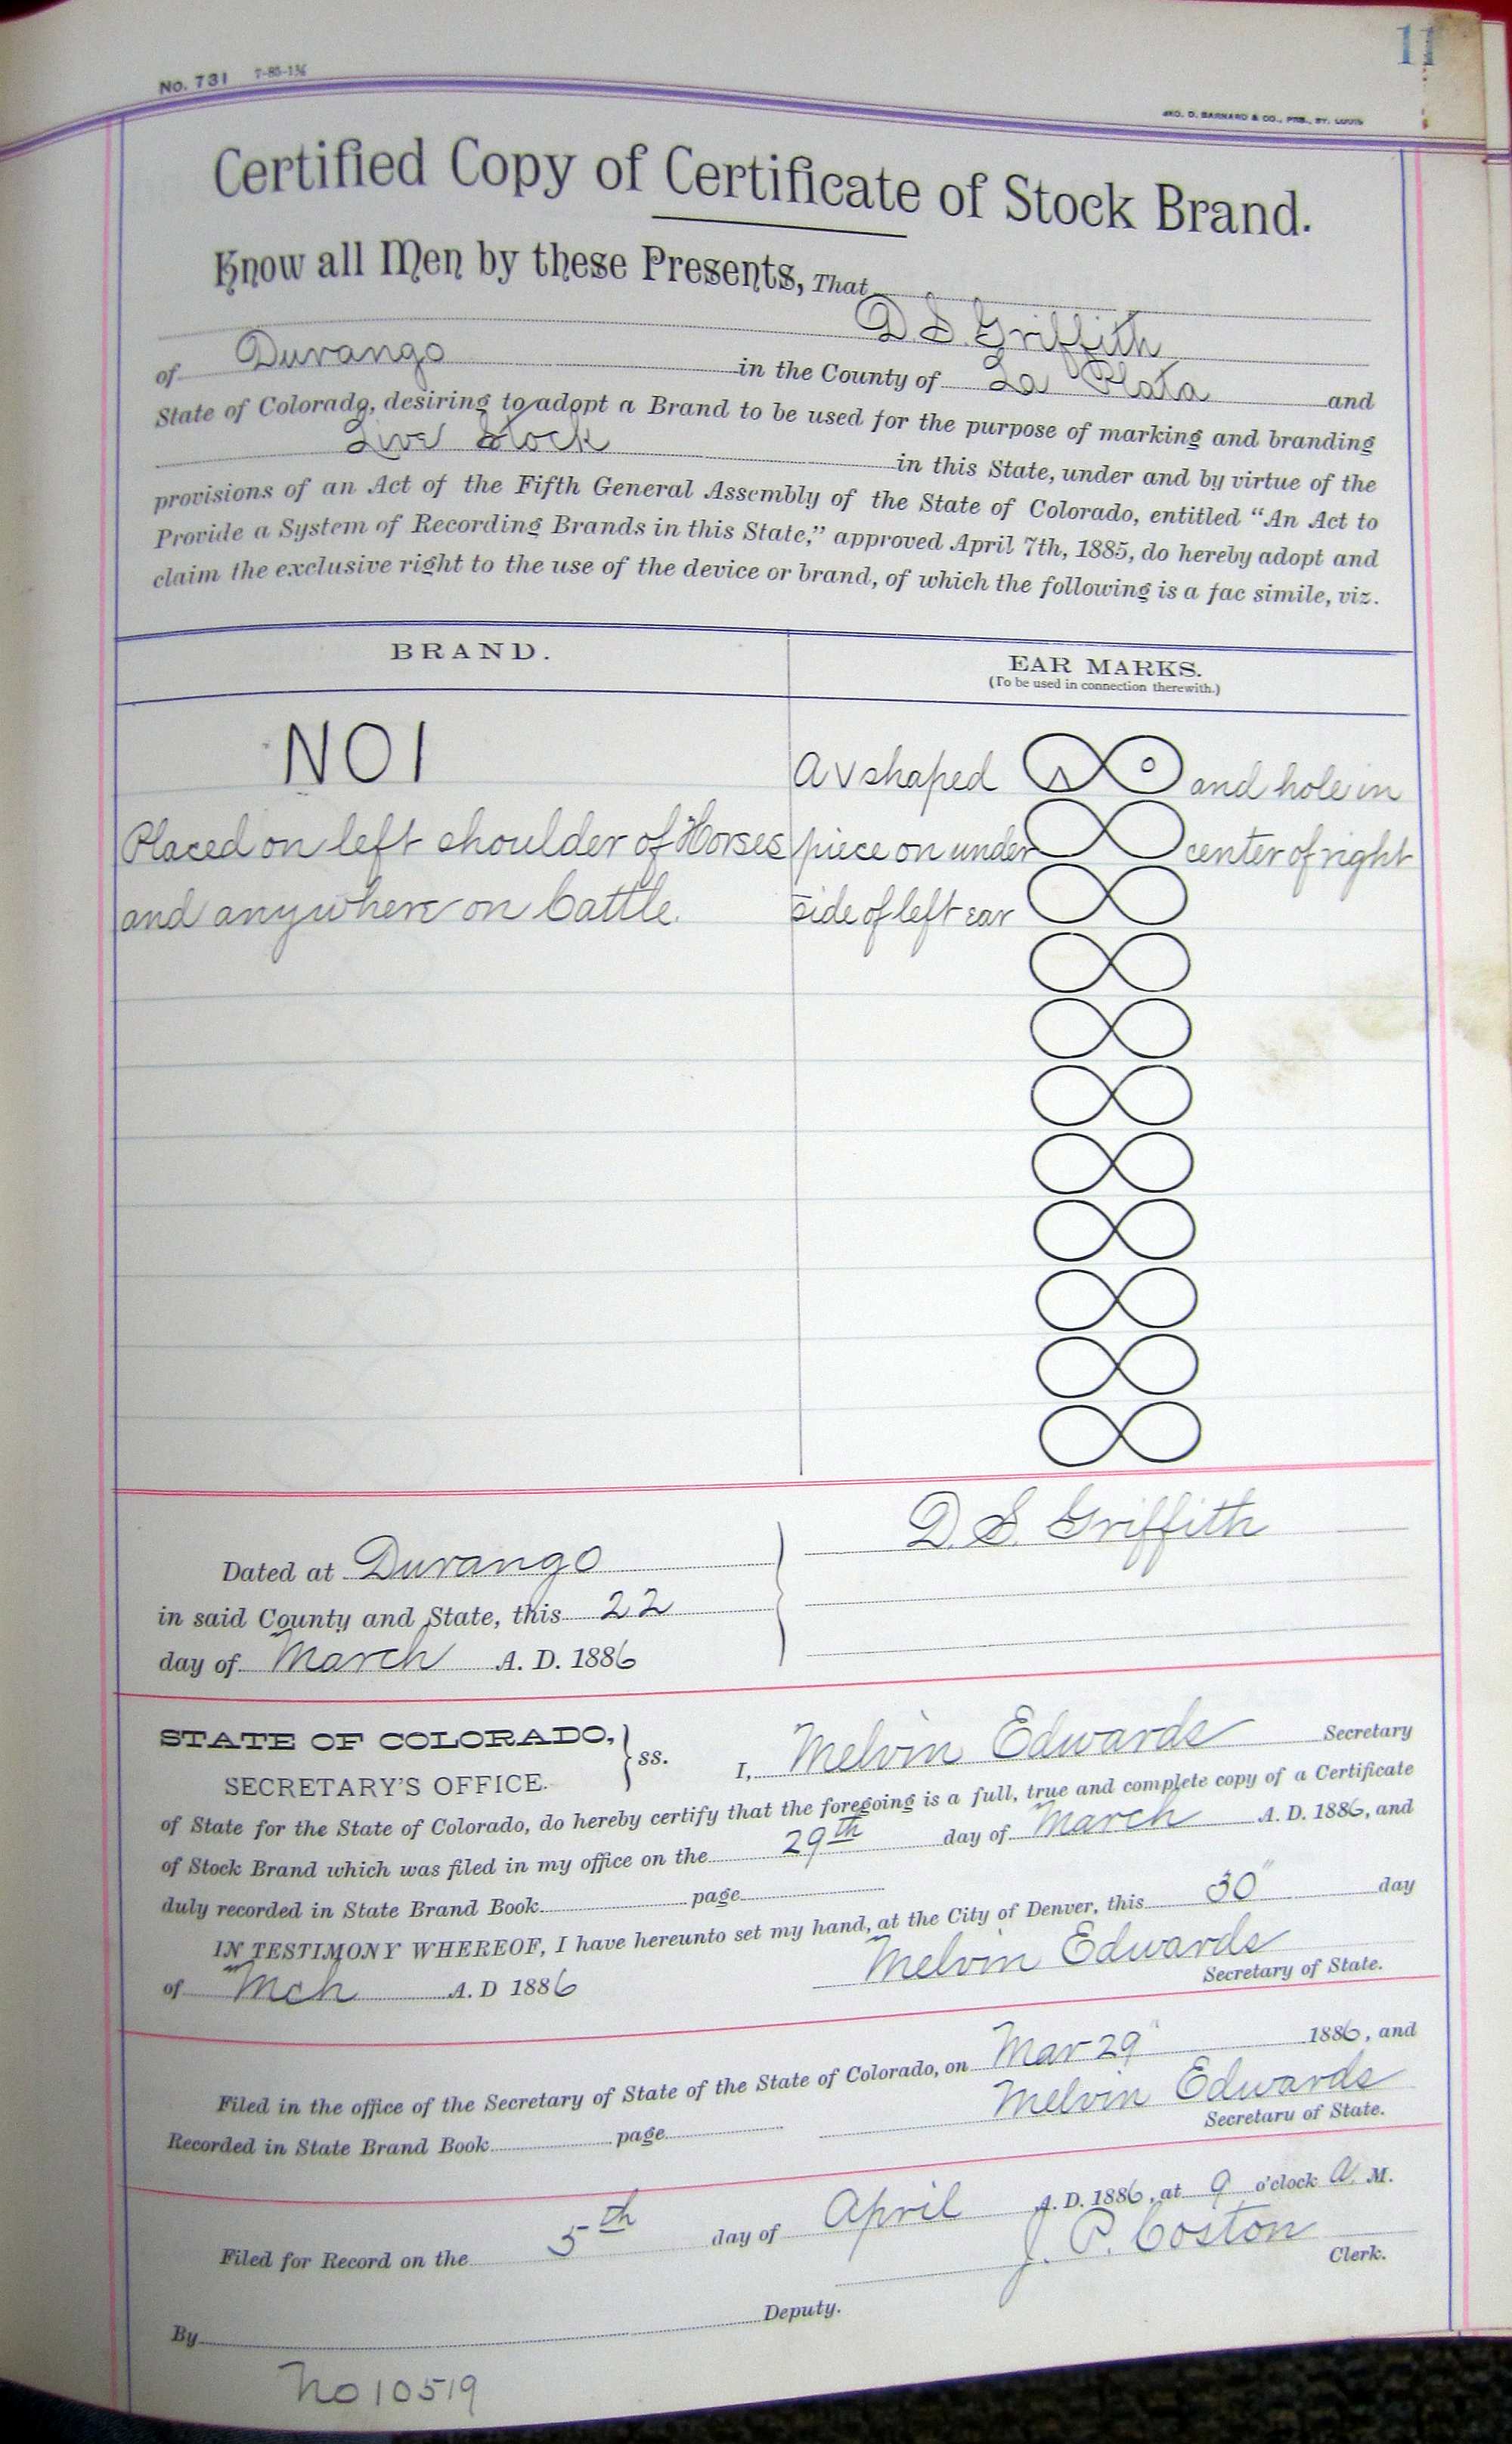 11
No. 731 7-85-1½
GEO. D. BARNARD & CO., PRS., ST. LOUIS
Certified Copy of Certificate of Stock Brand.
Know all Men by these Presents, That
D. S. Griffith
of Durango in the County of La Plata and
State of Colorado, desiring to adopt a Brand to be used for the purpose of marking and branding
Live Stock in this State, under and by virtue of the
provisions of an Act of the Fifth General Assembly of the State of Colorado, entitled “An Act to
Provide a System of Recording Brands in this State,” approved April 7th, 1885, do hereby adopt and
claim the exclusive right to the use of the device or brand, of which the following is a fac simile, viz.
BRAND.
EAR MARKS.
(To be used in connection therewith.)
NOI
Placed on left shoulder of Horses
and anywhere on Cattle.
A V shaped and hole in
piece on under center of right
side of left ear
D. S. Griffith
Dated at Durango
in said County and State, this 22
day of March A. D. 1886
STATE OF COLORADO,
SECRETARY'S OFFICE. } ss.
I, Melvin Edwards Secretary
of State for the State of Colorado, do hereby certify that the foregoing is a full, true and complete copy of a Certificate
of Stock Brand which was filed in my office on the 29th day of March A. D. 1886, and
duly recorded in State Brand Book page
IN TESTIMONY WHEREOF, I have hereunto set my hand, at the City of Denver, this 30" day
of Mch A. D 1886 Melvin Edwards
Secretary of State.
Filed in the office of the Secretary of State of the State of Colorado, on Mar 29" 1886, and
Recorded in State Brand Book page Melvin Edwards
Secretary of State.
Filed for Record on the 5th day of April A. D. 1886, at 9 o'clock A. M.
J. P. Coston
Clerk.
By Deputy.
No 10519